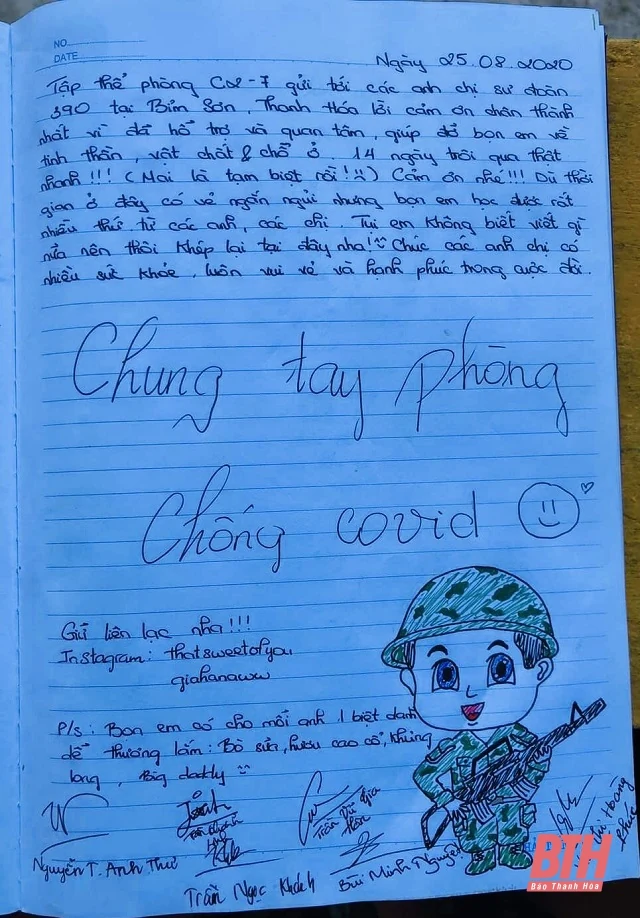 NO
DATE
Ngày 25.08.2020
Tập thể phòng C2-7 gửi tới các anh chị sư đoàn
390 tại Bỉm Sơn, Thanh Hóa lời cảm ơn chân thành
nhất vì đã hỗ trợ và quan tâm, giúp đỡ bọn em về
tinh thần, vật chất & chỗ ở. 14 ngày trôi qua thật
nhanh!!! (Mai là tạm biệt rồi!) Cảm ơn nhé!!! Dù thời
gian ở đây có vẻ ngắn ngủi nhưng bọn em học được rất
nhiều thứ từ các anh, các chị. Tụi em không biết viết gì
nữa nên thôi khép lại tại đây nha! Chúc các anh chị có
nhiều sức khỏe, luôn vui vẻ và hạnh phúc trong cuộc đời.
Chung tay phòng
Chống covid
Giữ liên lạc nha!!!
Instagram: thatsweetofyou
giahanaww
P/s: Bọn em có cho mỗi anh 1 biệt danh
dễ thương lắm: Bò sữa, hươu cao cổ, khủng
long, Big daddy
Nguyễn T. Anh Thư
Trần Vũ Gia
Hân
Trần Ngọc Khánh
Bùi Minh Nguyệt
BTH
Báo Thanh Hóa